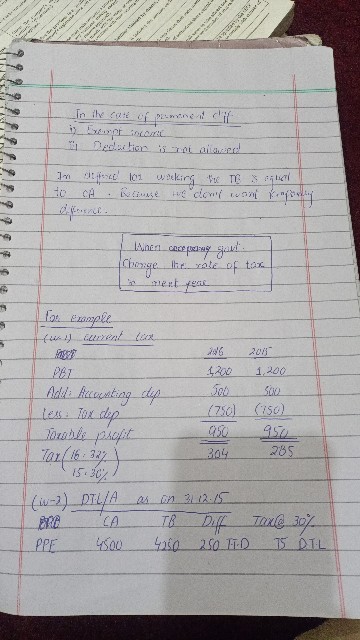 In the case of permanent diff.
i) Exempt income
ii) Deduction is not allowed
In deffred tax working the TB is equal
to CA. Because we don't want temporary
difference.
When govt.
Change the rate of tax
in next year
For example
(w-1) current tax
2016 2015
PBT 1,200 1,200
Add: Accounting dep 500 500
Less: Tax dep (750) (750)
Taxable profit 950 950
Tax (16 - 32% 304 285
15 - 30%)
(w-2) DTL/A as on 31.12.15
CA TB Diff Tax@ 30%
PPE 4500 4250 250 TTD 75 DTL